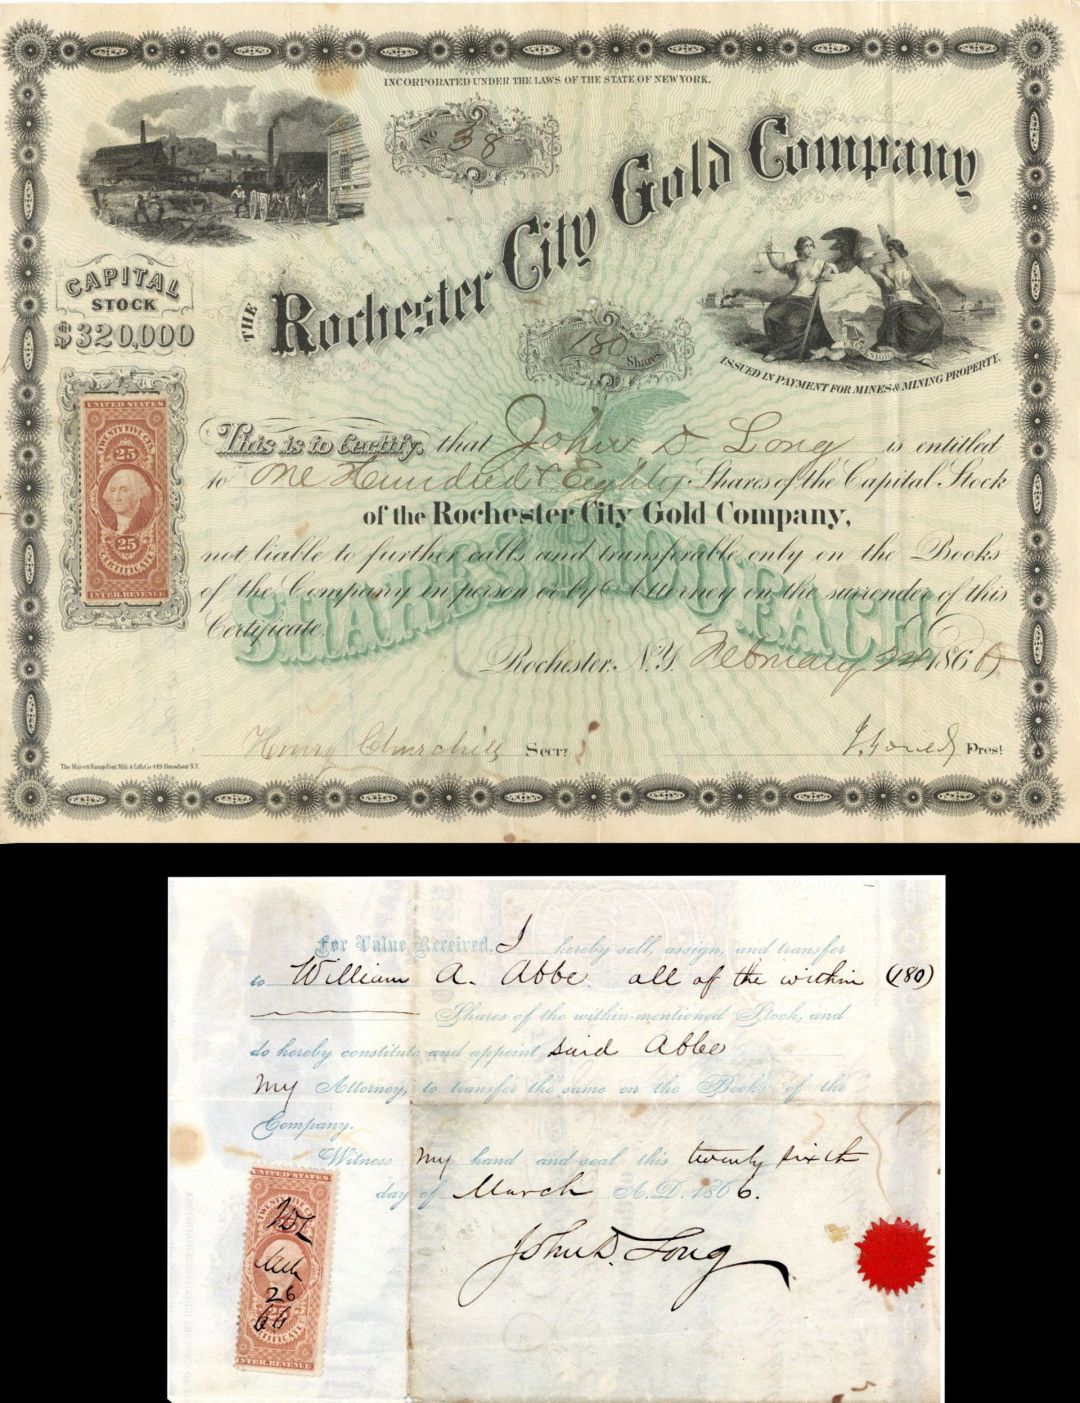 INCORPORATED UNDER THE LAWS OF THE STATE OF NEW YORK.
No 38
THE Rochester City Gold Company
CAPITAL
STOCK
$320,000
180 Shares
EXCELSIOR
ISSUED IN PAYMENT FOR MINES & MINING PROPERTY.
UNITED STATES
TWENTY FIVE CTS
25
25
CERTIFICATE
INTER. REVENUE
This is to Certify, that John D Long is entitled
to One Hundred & Eighty Shares of the Capital Stock
of the Rochester City Gold Company,
not liable to further calls and transferable only on the Books
of the Company in person or by Attorney on the surrender of this
Certificate.
SHARES $100 EACH
Rochester, N.Y. February 24 1866
Henry Churchill Secy.
J. Gould Prest
The Major & Knapp Eng. Mfg. & Lith. Co. 449 Broadway N.Y.
For Value Received, I hereby sell, assign, and transfer
to William A. Abbe all of the within (180)
Shares of the within-mentioned Stock, and
do hereby constitute and appoint said Abbe
My Attorney, to transfer the same on the Books of the
Company.
Witness My hand and seal this twenty sixth
day of March A.D. 1866.
John D. Long
UNITED STATES
Mch
26
66
25
CERTIFICATE
INTER. REVENUE